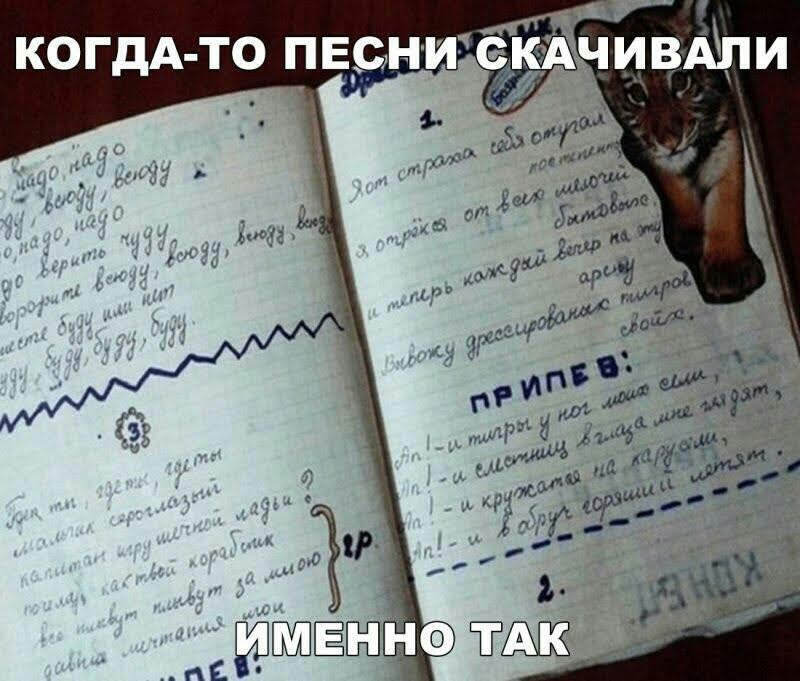 КОГДА-ТО ПЕСНИ СКАЧИВАЛИ
надо, надо
, всюду, всюду
о, надо, надо
верить чуду
всюду, всюду, всюду, всюду
буду или нет
буду, буду, буду.
3
ты, где ты, где ты
мальчик сероглазый
капитан игрушечной ладьи?
твой кораблик
все плывут за мною
2р.
давние мечтания мои
ПЕВ:
1.
Я от страха себя отучал
постепенно,
я отрёкся от всех мелочей
бытовых,
и теперь каждый вечер на эту
арену
Вывожу дрессированных тигров
своих.
ПРИПЕВ:
Ап! - и тигры у ног моих сели,
Ап! - и с лестниц в глаза мне глядят,
Ап! - и кружатся на карусели,
Ап! - и в обруч горящий летят.
2.
КОНЕЦ
ИМЕННО ТАК